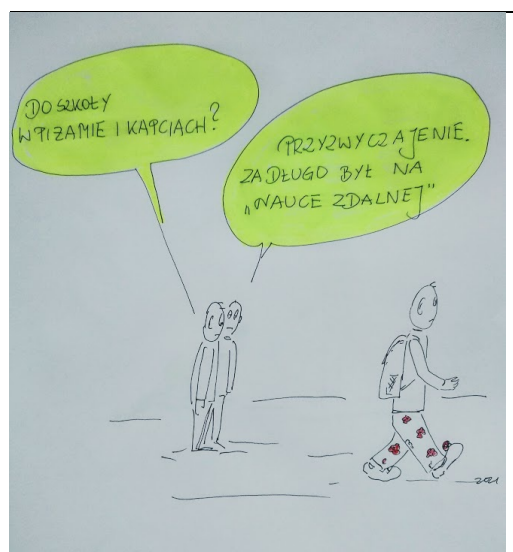 DO SZKOŁY
W PIŻAMIE I KAPCIACH?
PRZYZWYCZAJENIE.
ZADŁUGO BYŁ NA
„NAUCE ZDALNEJ”
2021